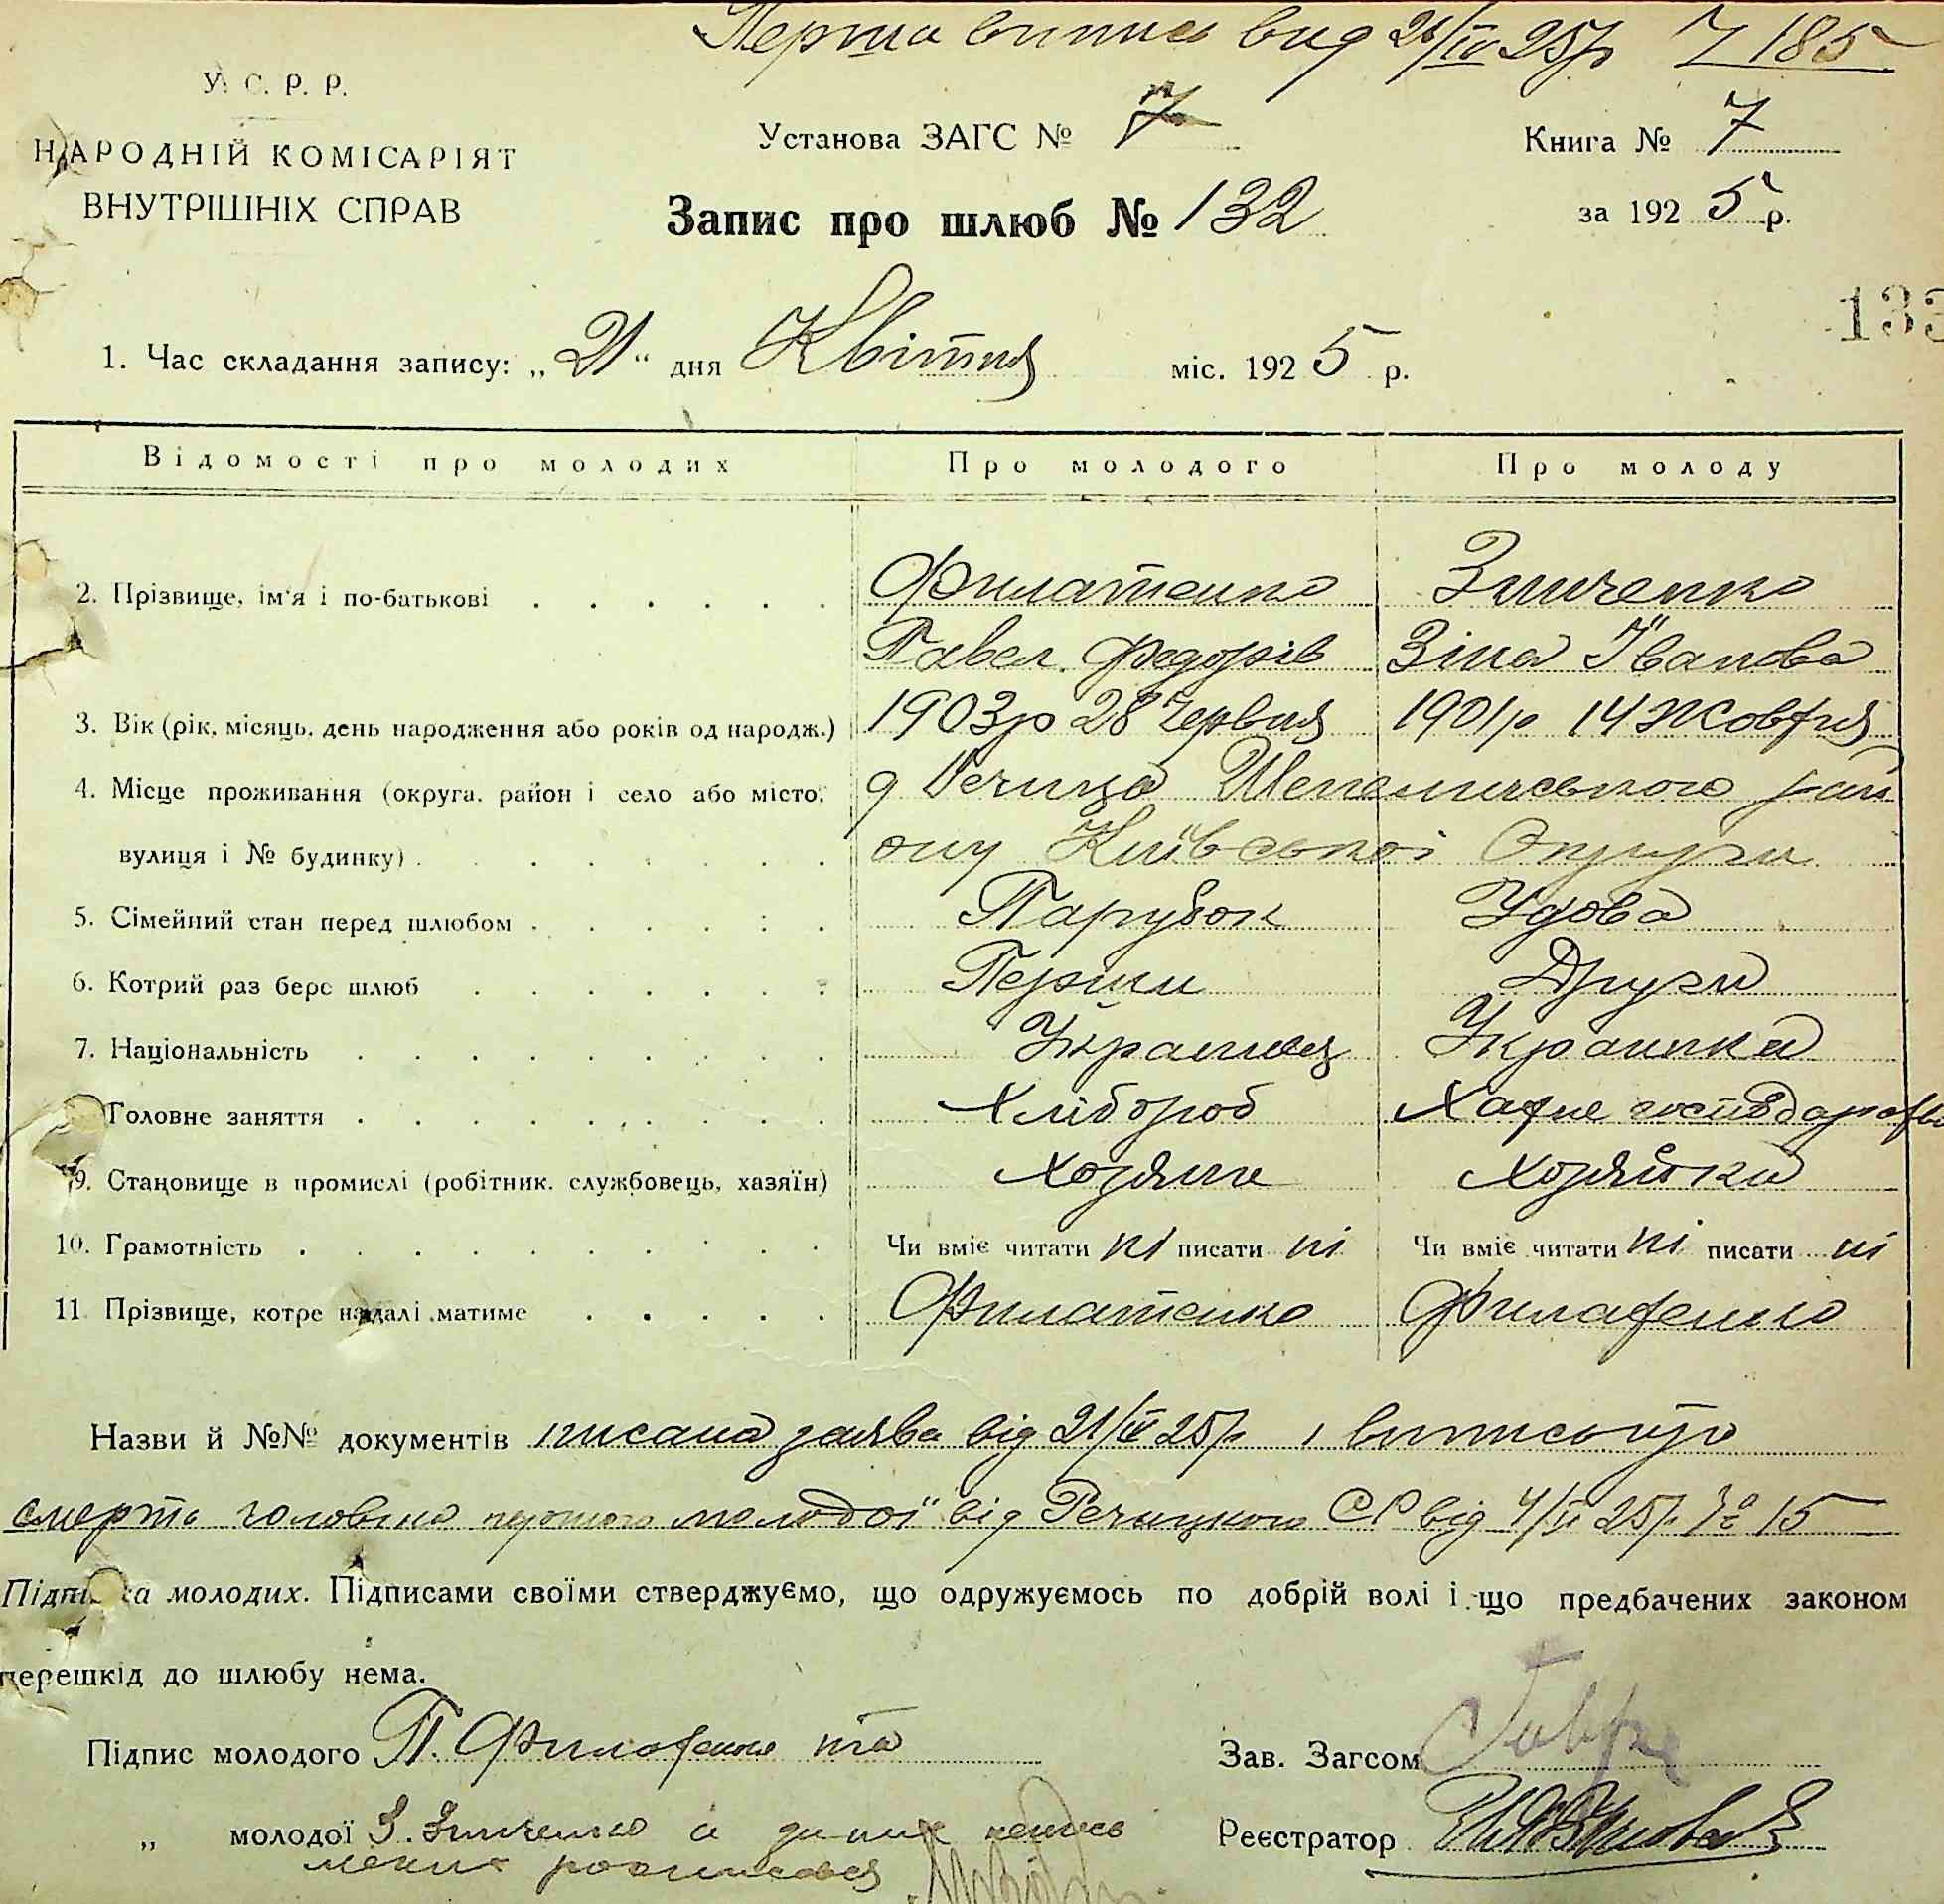 Перша випись вид 21/IV 25р № 185
У. С. Р. Р.
НАРОДНІЙ КОМІСАРІЯТ
ВНУТРІШНІХ СПРАВ
Установа ЗАГС № 7
Книга № 7
Запис про шлюб № 132
за 1925 р.
133
1. Час складання запису: „21“ дня Квітня міс. 1925 р.
Відомості про молодих Про молодого Про молоду
2. Прізвище, ім'я і по-батькові Филатенко Зинченко
Павел Федорів Зіна Іванова
3. Вік (рік, місяць, день народження або років од народж.) 1903р 28 Червня 1901р 14 Жовтня
4. Місце проживання (округа, район і село або місто, Речица Шепеличського рай
вулиця і № будинку) ону Київської Округи
5. Сімейний стан перед шлюбом Парубок Удова
6. Котрий раз бере шлюб Перши Други
7. Національність Украинец Украинка
Головне заняття Хлібороб Хатне господарство
9. Становище в промислі (робітник, службовець, хазяїн) Хозяин Хозяйка
10. Грамотність Чи вміє читати ні писати ні Чи вміє читати ні писати ні
11 Прізвище, котре надалі матиме Филатенко Филатенко
Назви й №№ документів писана заява від 21/IV 25р і випись про
смерть чоловіка першого молодої від Речицкого СР від 4/IV 25р № 15
Підписка молодих. Підписами своїми стверджуємо, що одружуємось по добрій волі і що предбачених законом
перешкід до шлюбу нема.
Підпис молодого П. Филатенко та
Зав. Загсом
„ молодої З. Зинченко а за них
розписався
Реєстратор